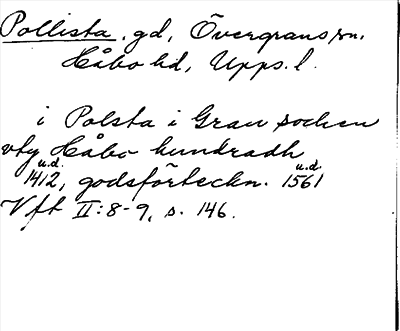 Pollista, gd, Övergrans sn.
Håbo hd, Upps. l.
i Polsta i Gran socken
vty Håbo hundradh
u.d. u.d.
1412, godsförteckn. 1561
Vft II:8-9, s. 146.